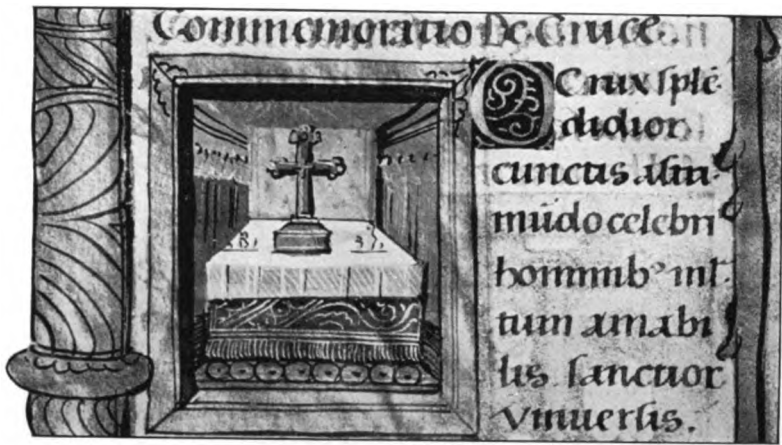 Commemoratio De Cruce.
O Crux splē
didior
cunctis astri.
mūdo celebri
hominibꝰ ml̄
tum amabi
lis sanctior
Vniuersis.